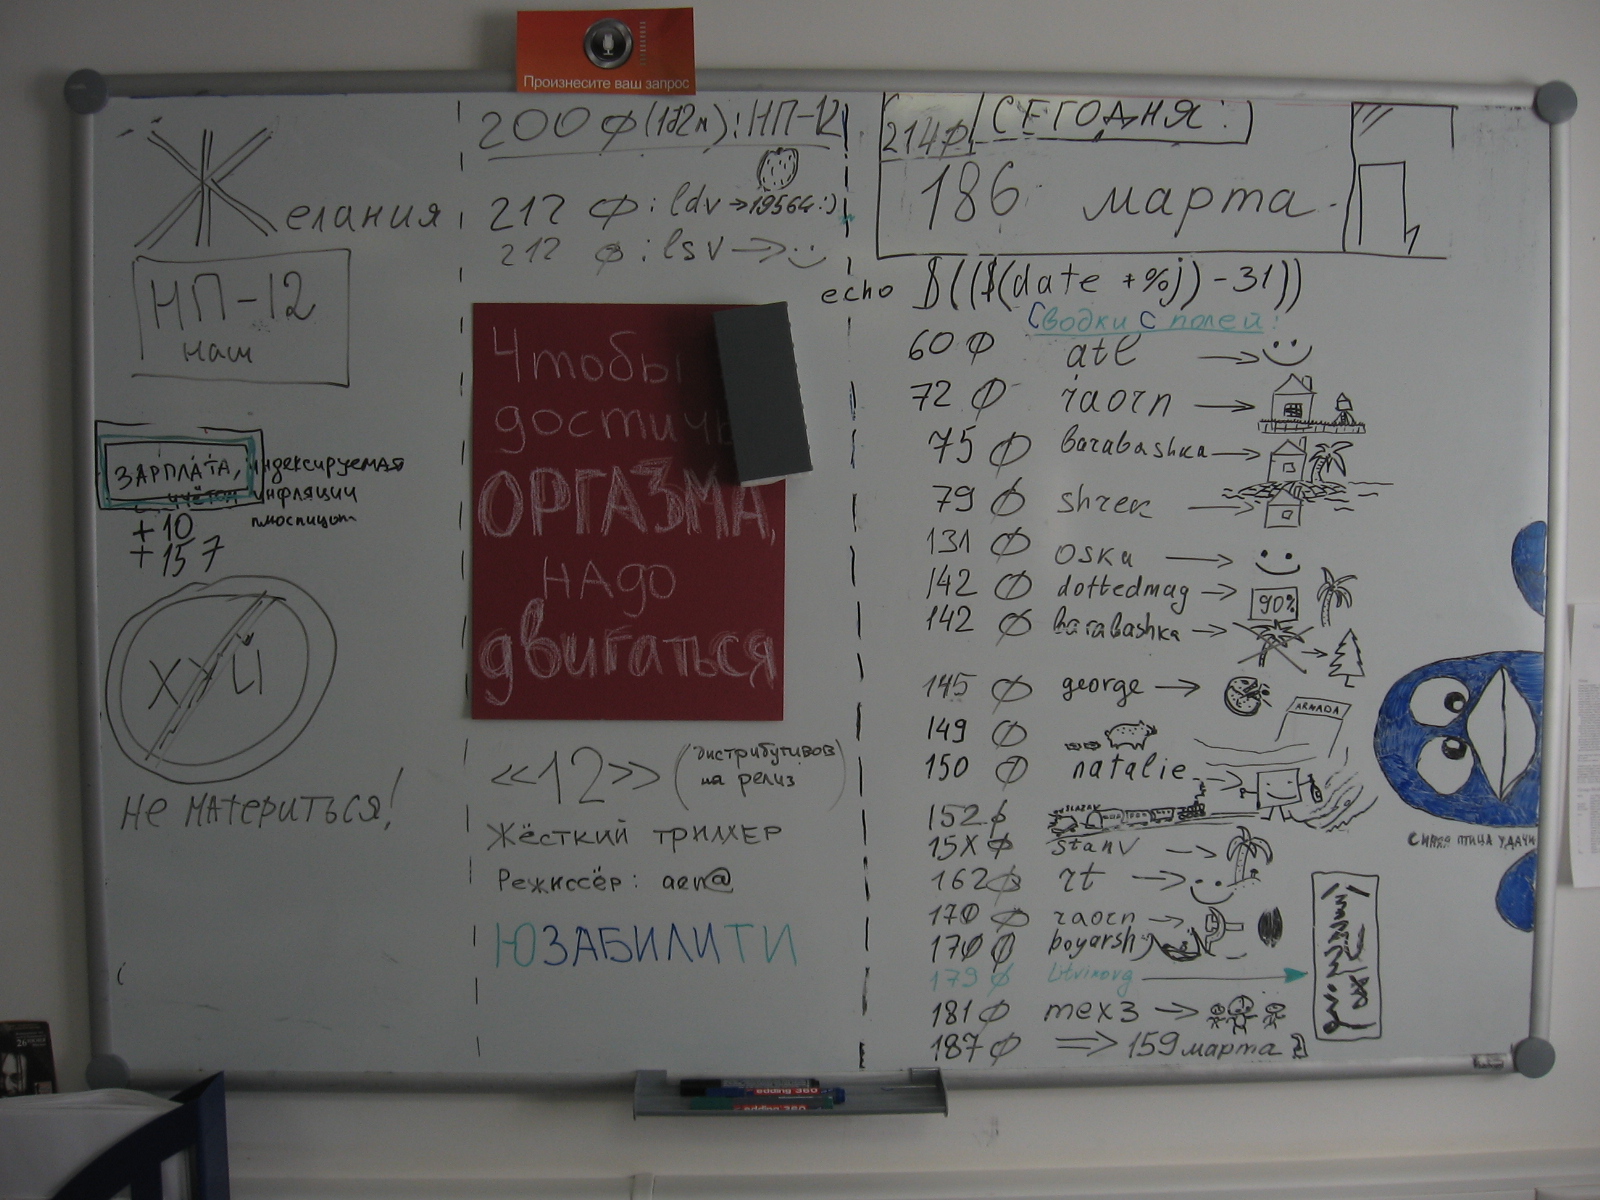 Произнесите ваш запрос
Желания
НП-12
наш
ЗАРПЛАТА, индексируемая
с учётом инфляции
+10
+157
ХУЙ
Не материться!
200 Ф (182м): НП-12
212 Ф: ldv → 19564:)
212 Ф: lsv →
Чтобы
достичь
ОРГАЗМА,
НАДО
двигаться
<<12>> (дистрибутивов
на релиз)
Жёсткий триллер
Режиссёр: aen@
ЮЗАБИЛИТИ
214Ф СЕГОДНЯ:
186 марта
echo $(($(date +%j) -31))
Сводки с полей:
60 Ф ate →
72 Ф raorn →
75 Ф barabashka →
79 Ф shrek →
131 Ф oska →
142 Ф dottedmag → 90%
142 Ф barabashka → →
145 Ф george →
ARMADA
149 Ф
150 Ф natalie →
152 Ф
15X Ф stanv →
162 Ф rt →
170 Ф raorn →
170 Ф boyarsh
179 Ф Litvinovg →
181 Ф mex3 →
187 Ф => 159 марта
синяя птица удачи